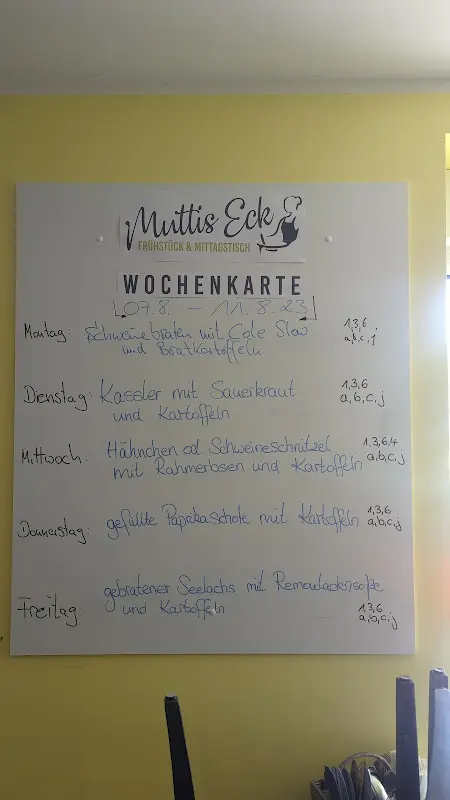 Muttis Eck
FRÜHSTÜCK & MITTAGSTISCH
WOCHENKARTE
07.8. – 11.8.23
Montag: Schweinebraten mit Cole Slaw 1,3,6
und Bratkartoffeln a,b,c,j
Dienstag: Kassler mit Sauerkraut 1,3,6
und Kartoffeln a,b,c,j
Mittwoch: Hähnchen od Schweineschnitzel 1,3,6,4
mit Rahmerbsen und Kartoffeln a,b,c,j
Donnerstag: gefüllte Paprikaschote mit Kartoffeln 1,3,6
a,b,c,j
gebratener Seelachs mit Remouladensoße
Freitag und Kartoffeln 1,3,6
a,b,c,j